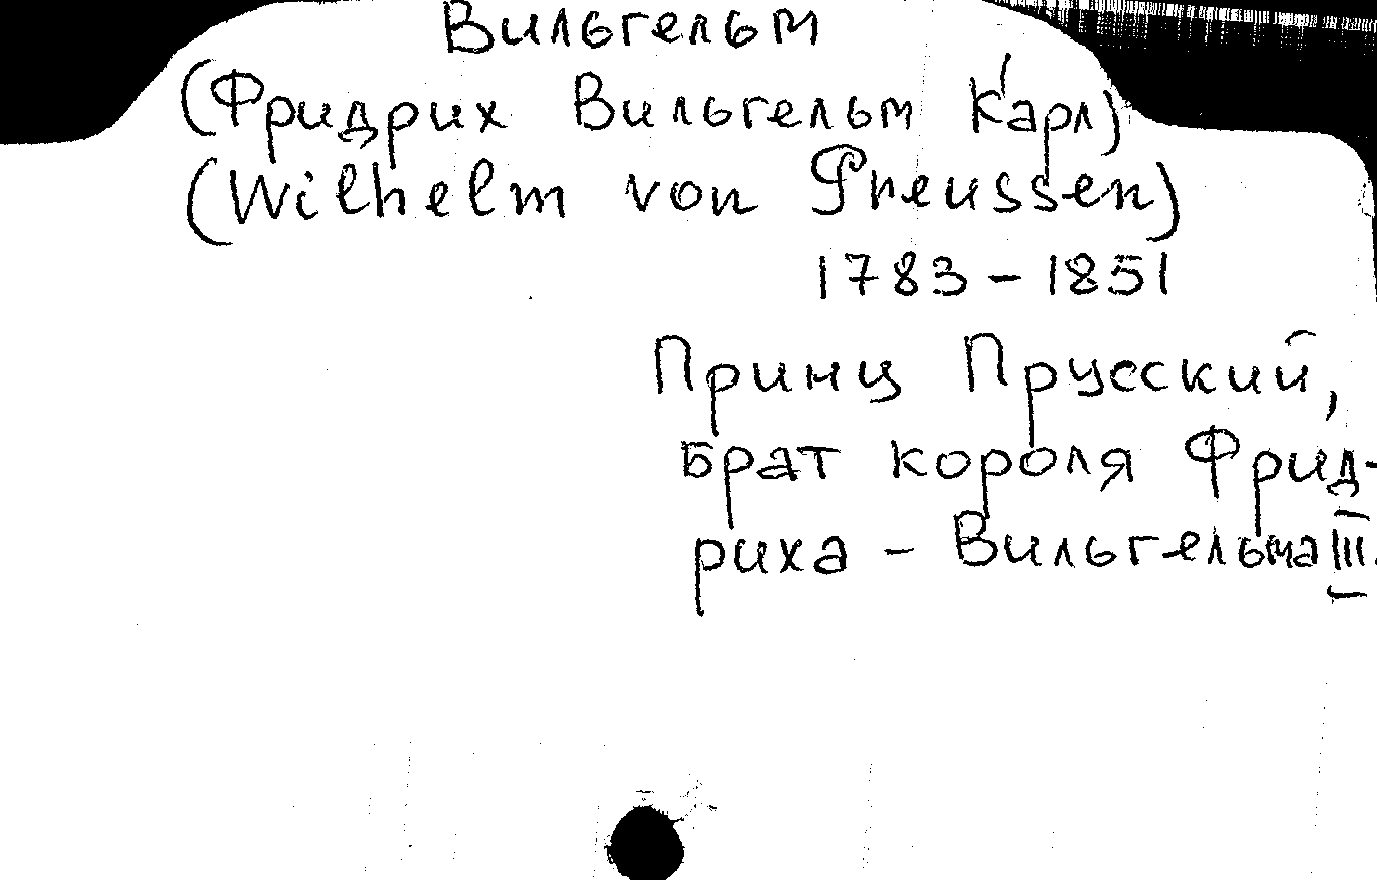 Вильгельм
(Фридрих Вильгельм Карл)
(Wilhelm von Preussen)
1783 – 1851
Принц Прусский,
брат короля Фрид-
риха – Вильгельма III.